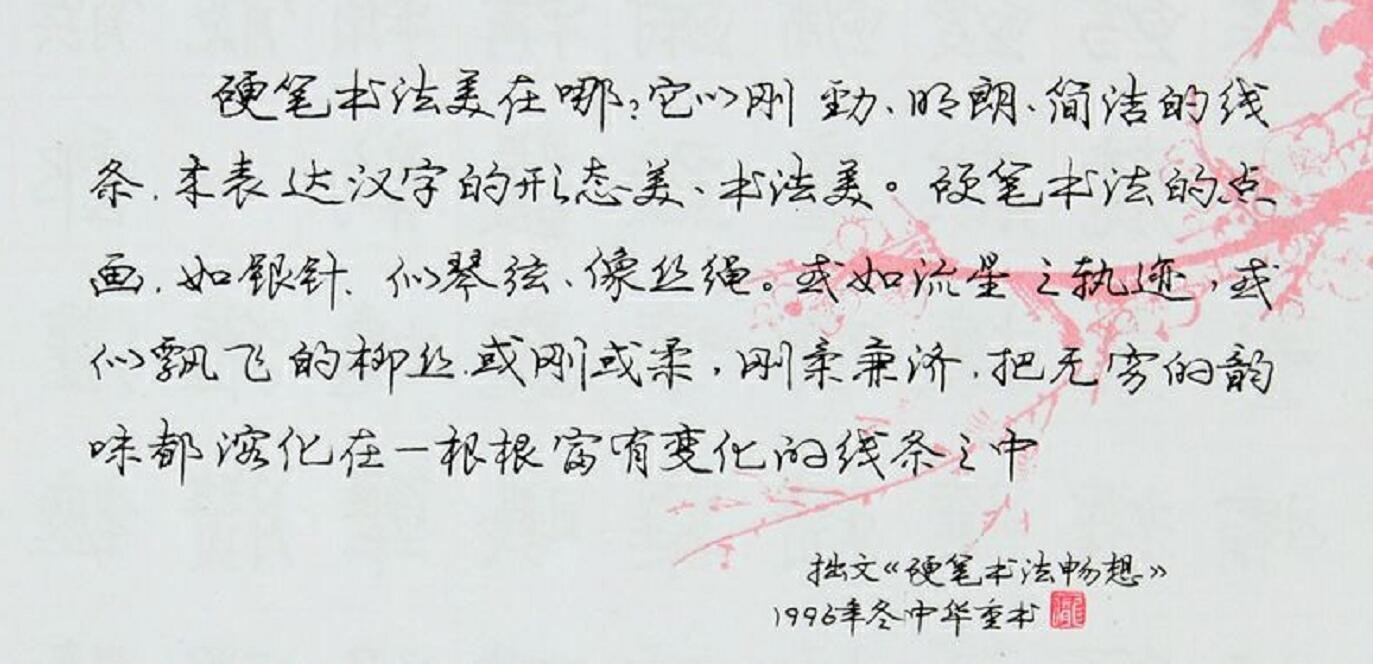 硬笔书法美在哪?它以刚劲、明朗、简洁的线
条,来表达汉字的形态美、书法美。硬笔书法的点
画,如银针、似琴弦、像丝绳。或如流星之轨迹,或
似飘飞的柳丝,或刚或柔,刚柔兼济,把无穷的韵
味都溶化在一根根富有变化的线条之中
拙文《硬笔书法畅想》
1996年冬中华重书